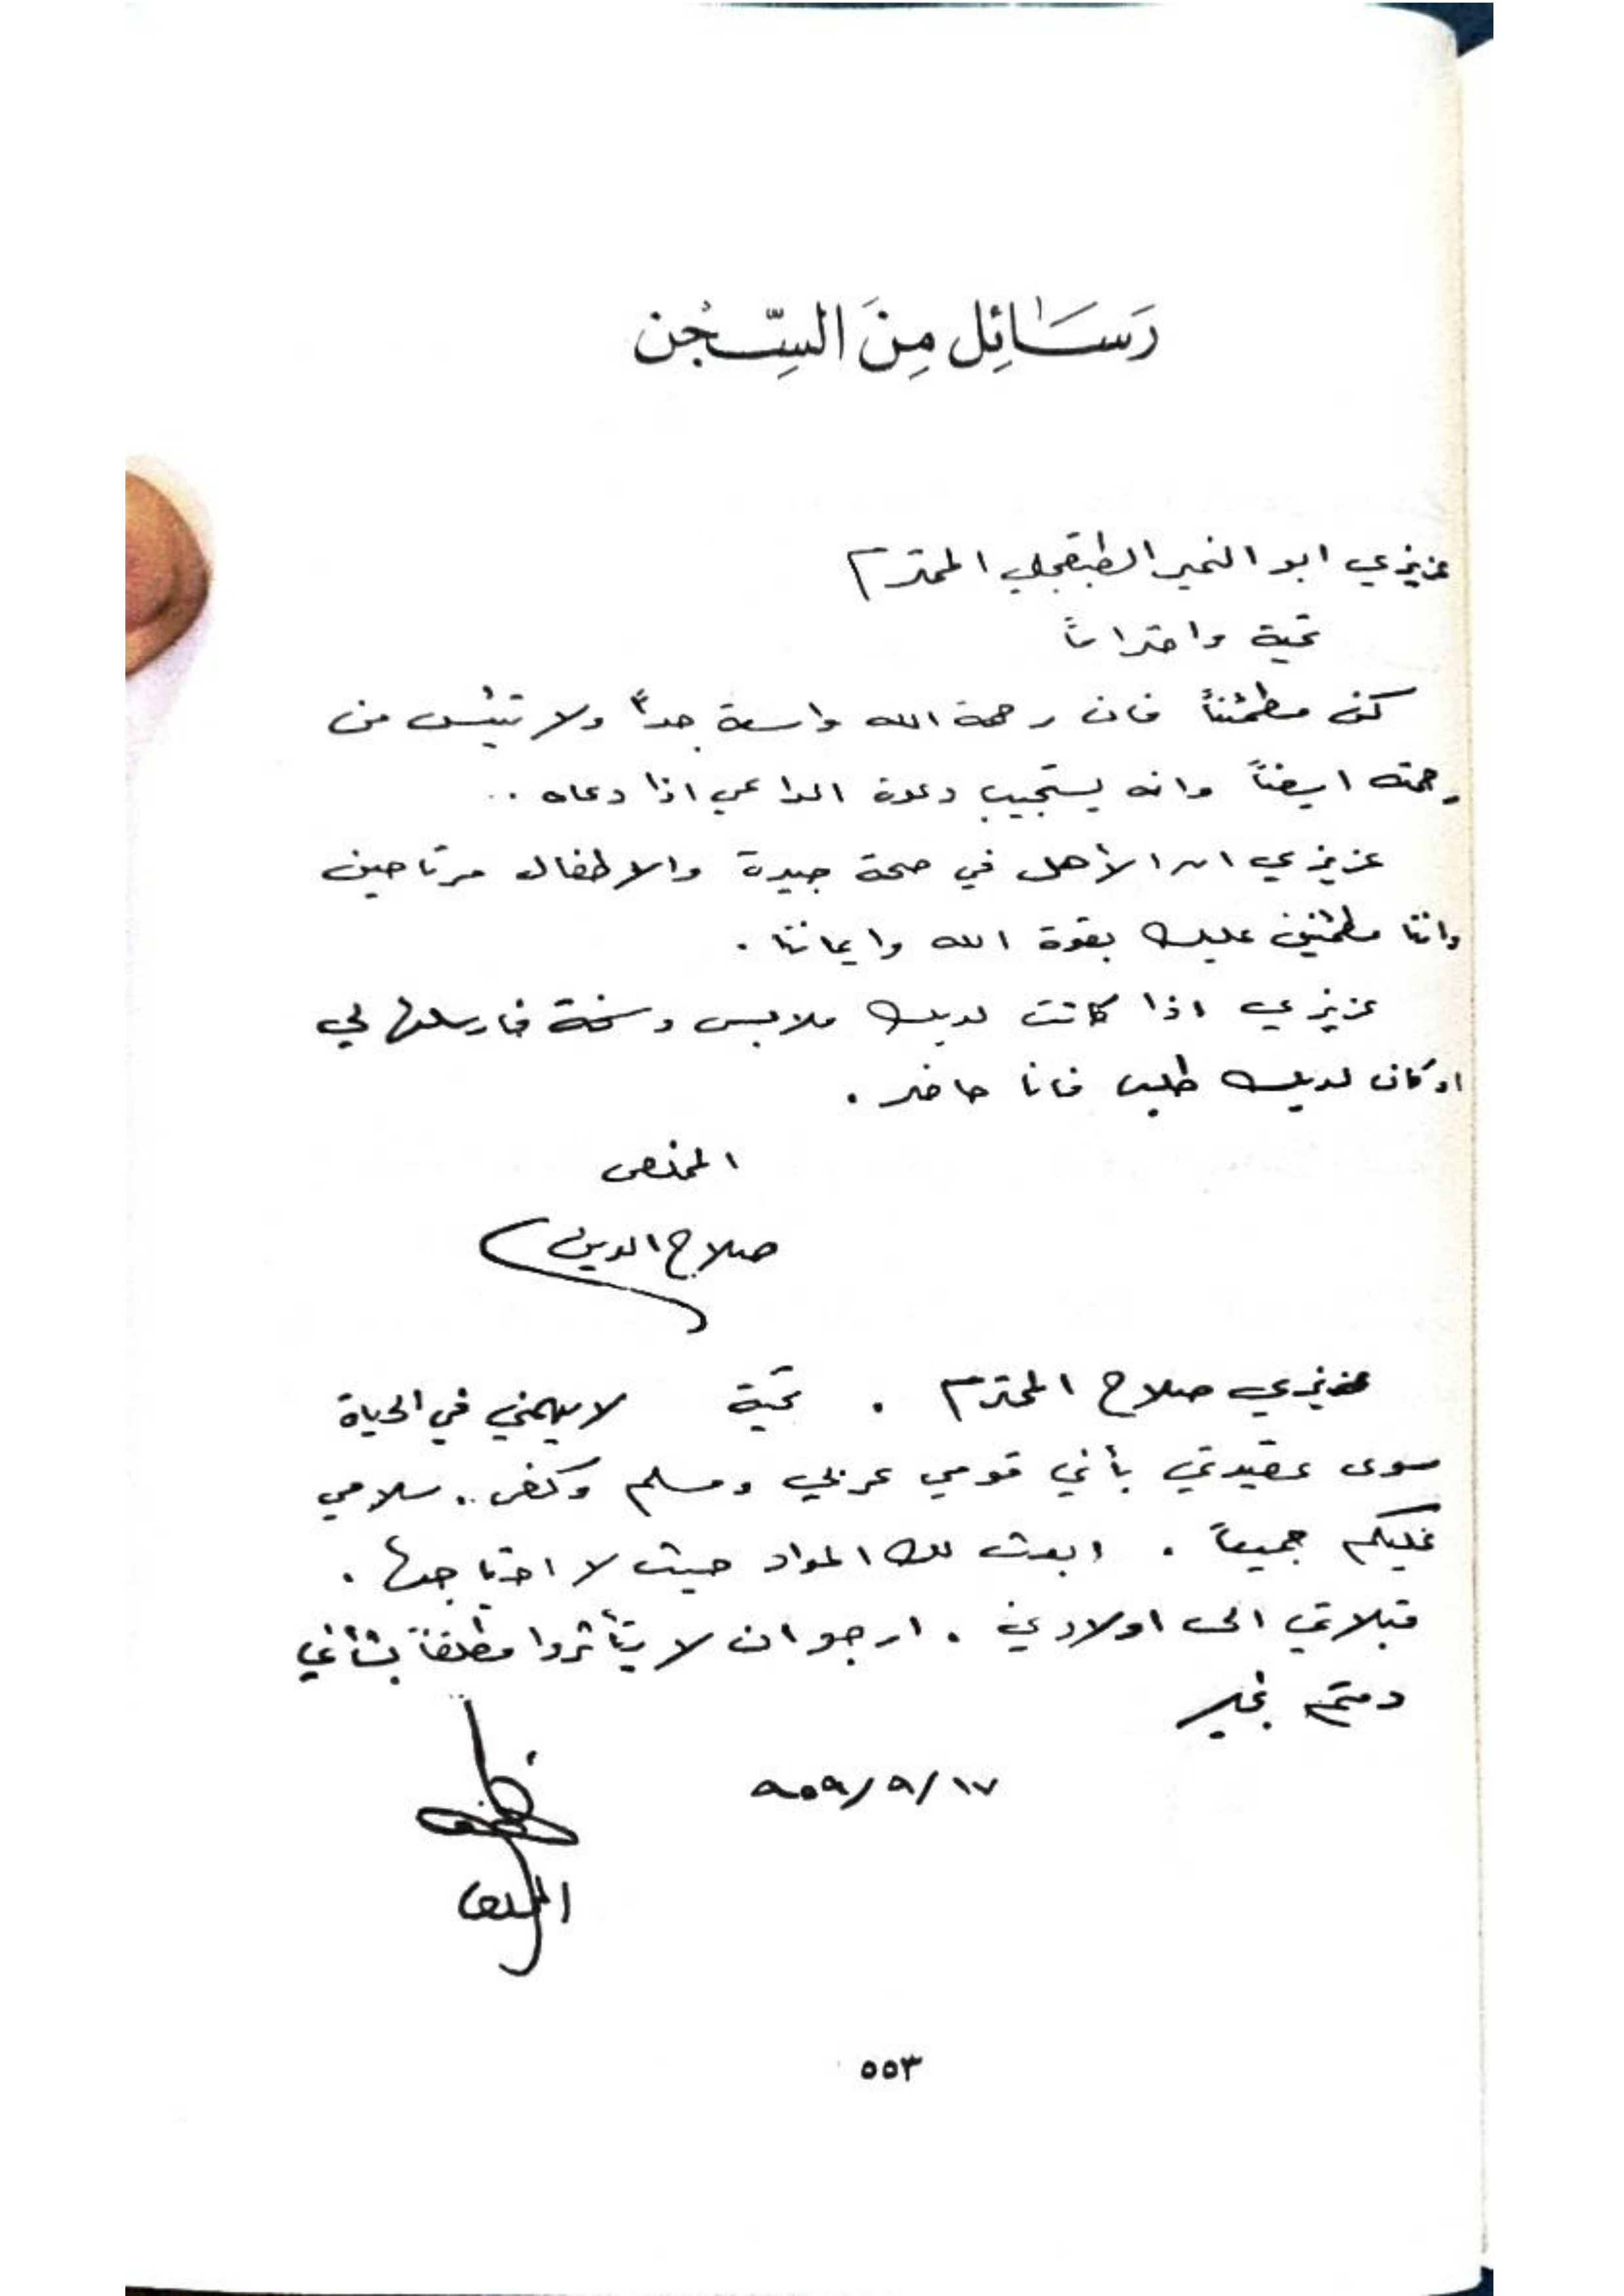 رَسَائِل مِنَ السِّجْن
عزيزي ابو النمير الطبقجلي المحترم
تحية واحتراماً
كن مطمئناً فان رحمة الله واسعة جداً ولا تيئس من
رحمته ايضاً وانه يستجيب دعوة الداعي اذا دعاه ..
عزيزي ان الأهل في صحة جيدة والاطفال مرتاحين
واننا مطمئنين عليك بقوة الله وايماننا .
عزيزي اذا كانت لديك ملابس وسخة فارسلها لي
او كان لديك طلب فانا حاضر .
المخلص
صلاح الدين
عزيزي صلاح المحترم . تحية لا يهمني في الحياة
سوى عقيدتي بأني قومي عربي ومسلم وكفى .. سلامي
عليكم جميعاً . ابعث لك المواد حيث لا احتاجها .
قبلاتي الى اولادي . ارجو ان لا يتأثروا مطلقاً بشأني
دمتم بخير
١٧/٩/٩٥٩
٥٥٣